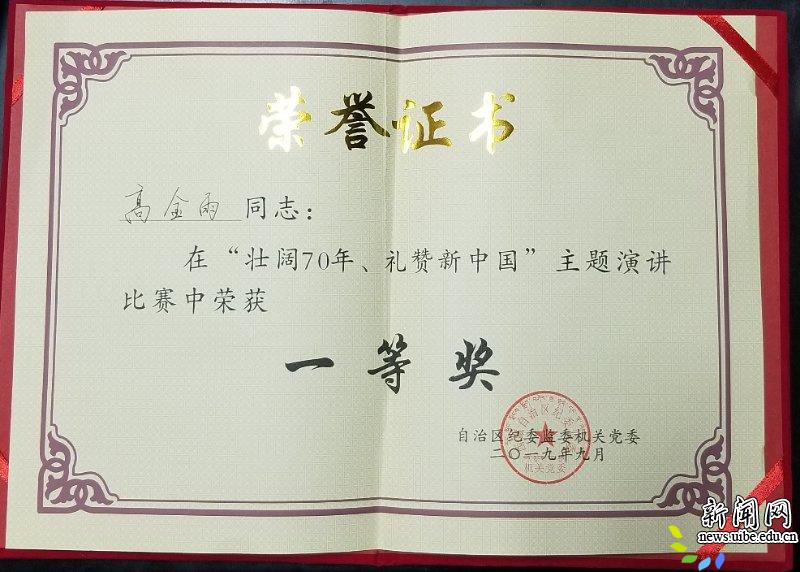 荣誉证书
高金雨 同志：
在“壮阔70年、礼赞新中国”主题演讲
比赛中荣获
一等奖
自治区纪委监委机关党委
二〇一九年九月
机关党委
新闻网
news.uibe.edu.cn